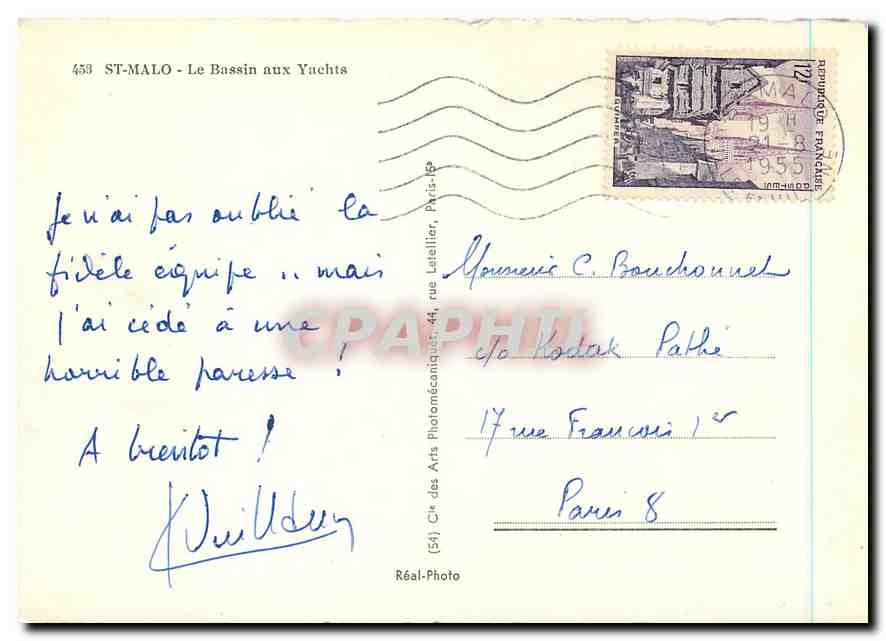 458 ST-MALO - Le Bassin aux Yachts
Je n'ai pas oublié la
fidèle équipe .. mais
j'ai cédé à une
horrible paresse !
A bientot !
(54) Cie des Arts Photomécaniques, 44, rue Letellier, Paris-15e
Réal-Photo
12F
REPUBLIQUE FRANÇAISE
POSTES
QUIMPER
MALO
19 H
21-8
1955
Monsieur C. Bouchonnet
c/o Kodak Pathé
17 rue Francois 1er
Paris 8
CPAPHIL